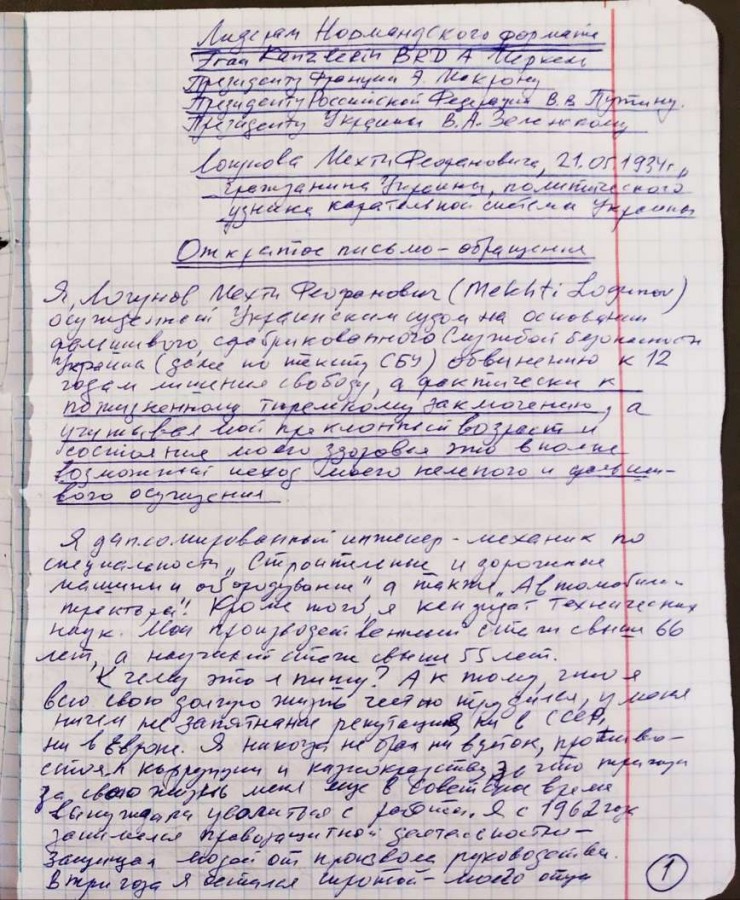 Лидерам Нормандского формата
Канцлеру BRD А Меркель
Президенту Франции Э. Макрону
Президенту Российской Федерации В.В Путину.
Президенту Украины В.А. Зеленскому
Логунова Мехти Феофановича, 21.05.1934г.,
гражданина Украины, политического
узника карательной системы Украины
Открытое письмо-обращения
Я, Логунов Мехти Феофанович (Mekhti Logunov)
осужденный Украинским судом на основании
фальшивого, сфабрикованного Службой безопасности
Украины (далее по тексту СБУ) обвинению к 12
годам лишения свободы, а фактически к
пожизненному тюремному заключению, а
учитывая мой преклонный возраст и
состояние моего здоровья это вполне
возможный исход моего нелепого и фальши-
вого осуждения.
Я дипломированный инженер-механик по
специальности „Строительные и дорожные
машины и оборудование", а также „Автомобили и
трактора". Кроме того, я кандидат технических
наук. Мой производственный стаж свыше 66
лет, а научный стаж свыше 55 лет.
К чему это я пишу? А к тому, что я
всю свою долгую жизнь честно трудился, у меня
ничем не запятнана репутация ни в СССР,
ни в Европе. Я никогда не был ни в, противо-
стоял коррупции и казнокрадству, за что трижды
за свою жизнь меня еще в советское время
вынуждали уволиться с работы. Я с 1962 года
занимался правозащитной деятельностью-
защищая людей от произвола руководства.
В три года я остался сиротой - моего отца
1